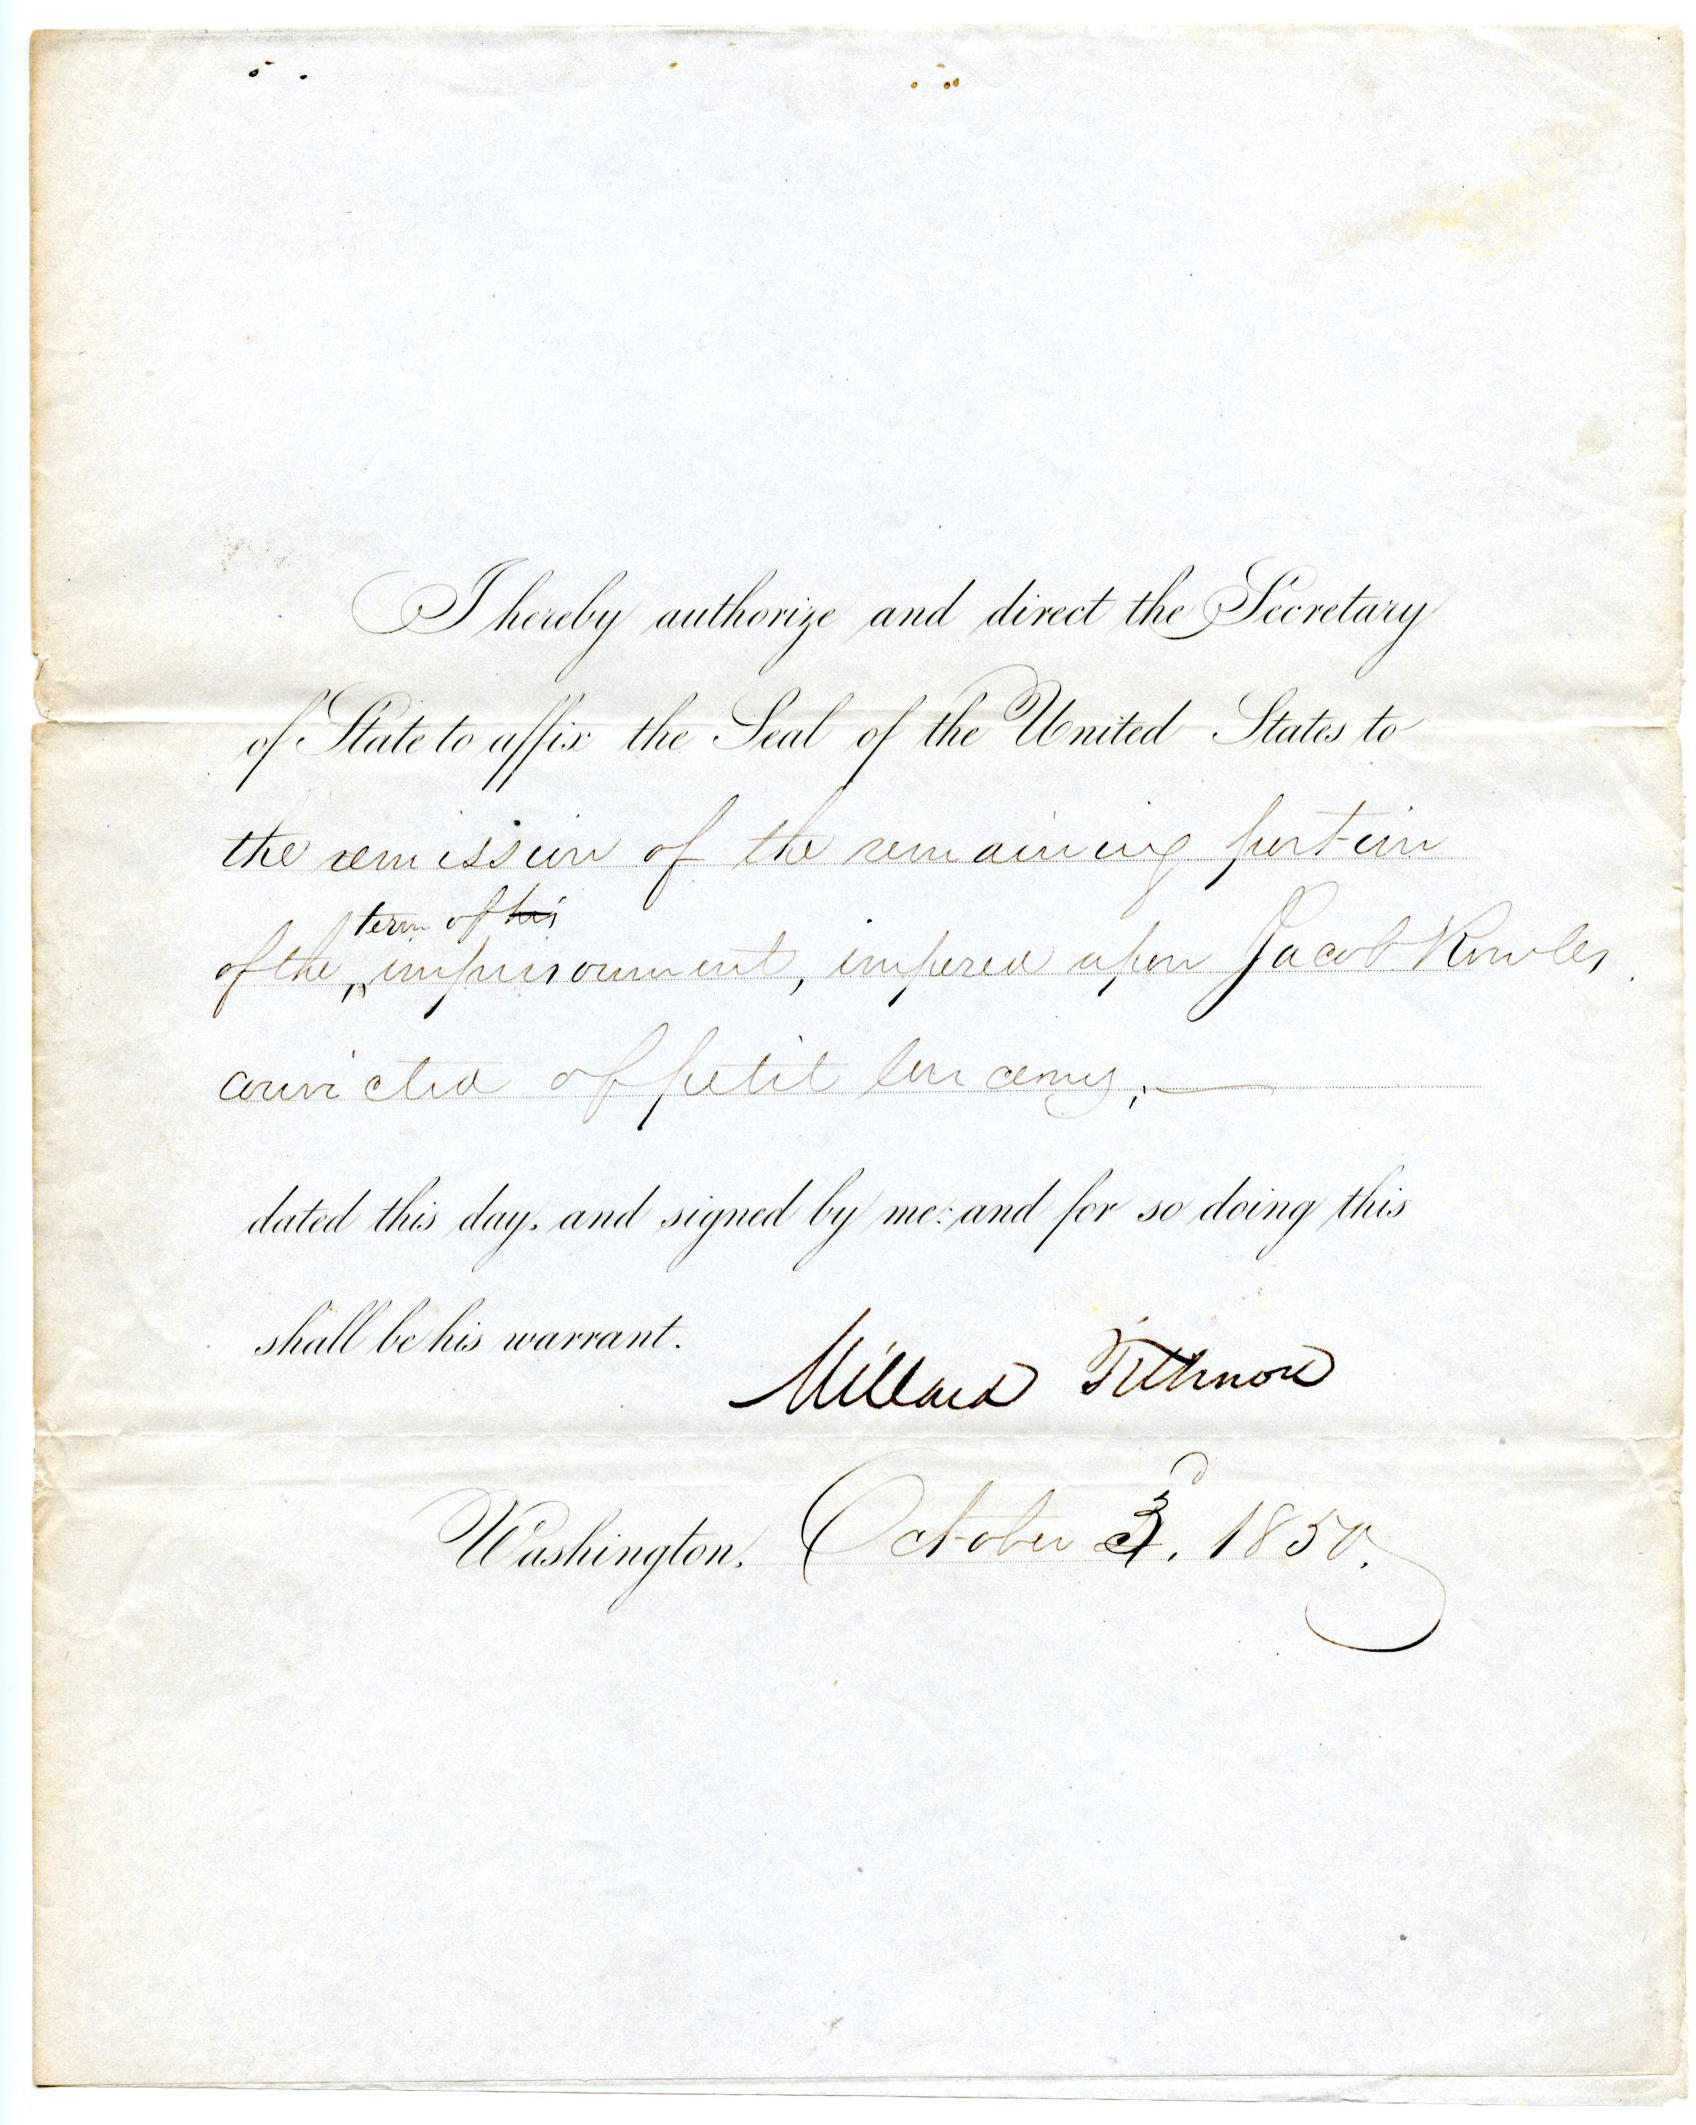 I hereby authorize and direct the Secretary
of State to affix the Seal of the United States to
the remission of the remaining portion
term of his
of the imprisonment, imposed upon Jacob Rowles
convicted of petit larceny;
dated this day, and signed by me: and for so doing this
shall be his warrant.
Millard Fillmore
Washington, October 3d, 1850.